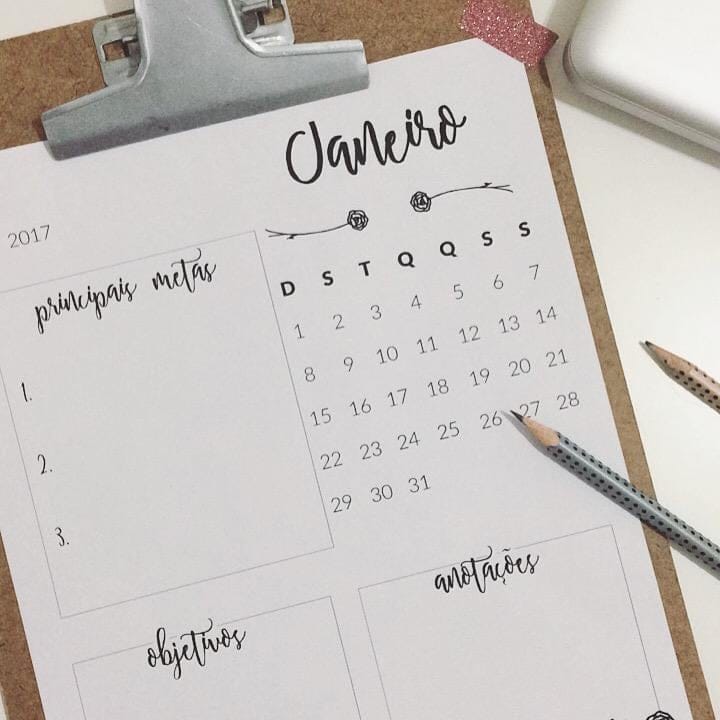 Janeiro
2017
principais metas
1.
2.
3.
D S T Q Q S S
1 2 3 4 5 6 7
8 9 10 11 12 13 14
15 16 17 18 19 20 21
22 23 24 25 26 27 28
29 30 31
objetivos
anotações